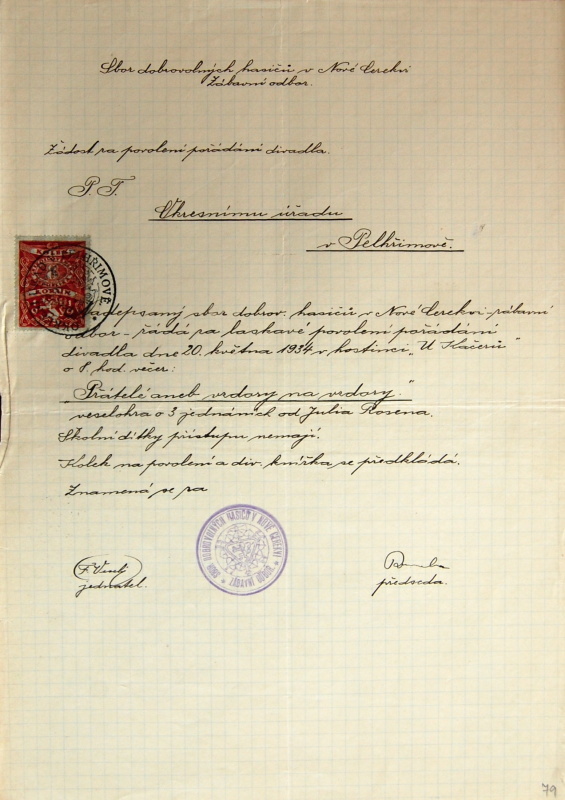 Sbor dobrovolných hasičů v Nové Cerekvi
Zábavní odbor.
Žádost za povolení pořádání divadla.
P. T.
Okresnímu úřadu
v Pelhřimově.
Nadepsaný sbor dobrov. hasičů v Nové Cerekvi - zábavní
odbor - žádá za laskavé povolení pořádání
divadla dne 20. května 1934 v hostinci „U Kačerů"
o 8. hod. večer:
„Přátelé aneb vzdory na vzdory."
veselohra o 3 jednáních od Julia Rosena.
Školní dítky přístupu nemají.
Kolek na povolení a div. knížka se předkládá.
Znamená se za
SBOR DOBROVOLNÝCH HASIČŮ V NOVÉ CEREKVI
jednatel.
předseda.
79